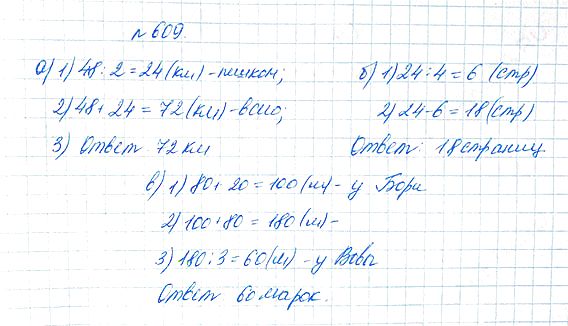 № 609.
а) 1) 48 : 2 = 24 (км) - пешком;
2) 48 + 24 = 72 (км) - всего;
3) Ответ 72 км
б) 1) 24 : 4 = 6 (стр)
2) 24 - 6 = 18 (стр)
Ответ: 18 страниц
в) 1) 80 + 20 = 100 (м) - у Бори
2) 100 + 80 = 180 (м) -
3) 180 : 3 = 60 (м) - у Вовы
Ответ 60 марок.